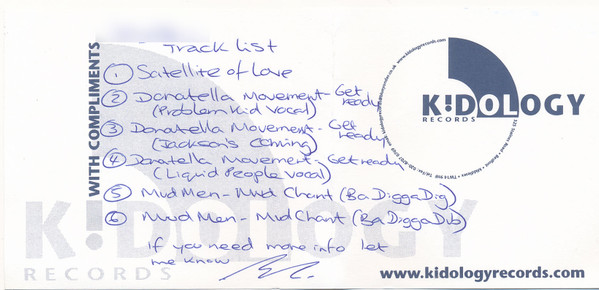 WITH COMPLIMENTS
Track List
① Satellite of Love
② Donatella Movement - Get ready
(Problem Kid Vocal)
③ Donatella Movement - Get ready
(Jackson's Coming)
④ Donatella Movement - Get ready
(Liquid People Vocal)
⑤ Mud Men - Mud Chant (Ba Digga Dig)
⑥ Mud Men - Mud Chant (Ba Digga Dub)
If you need more info let
me know
www.kidologyrecords.com
K!DOLOGY
RECORDS
K!DOLOGY
RECORDS
www.kidologyrecords.com